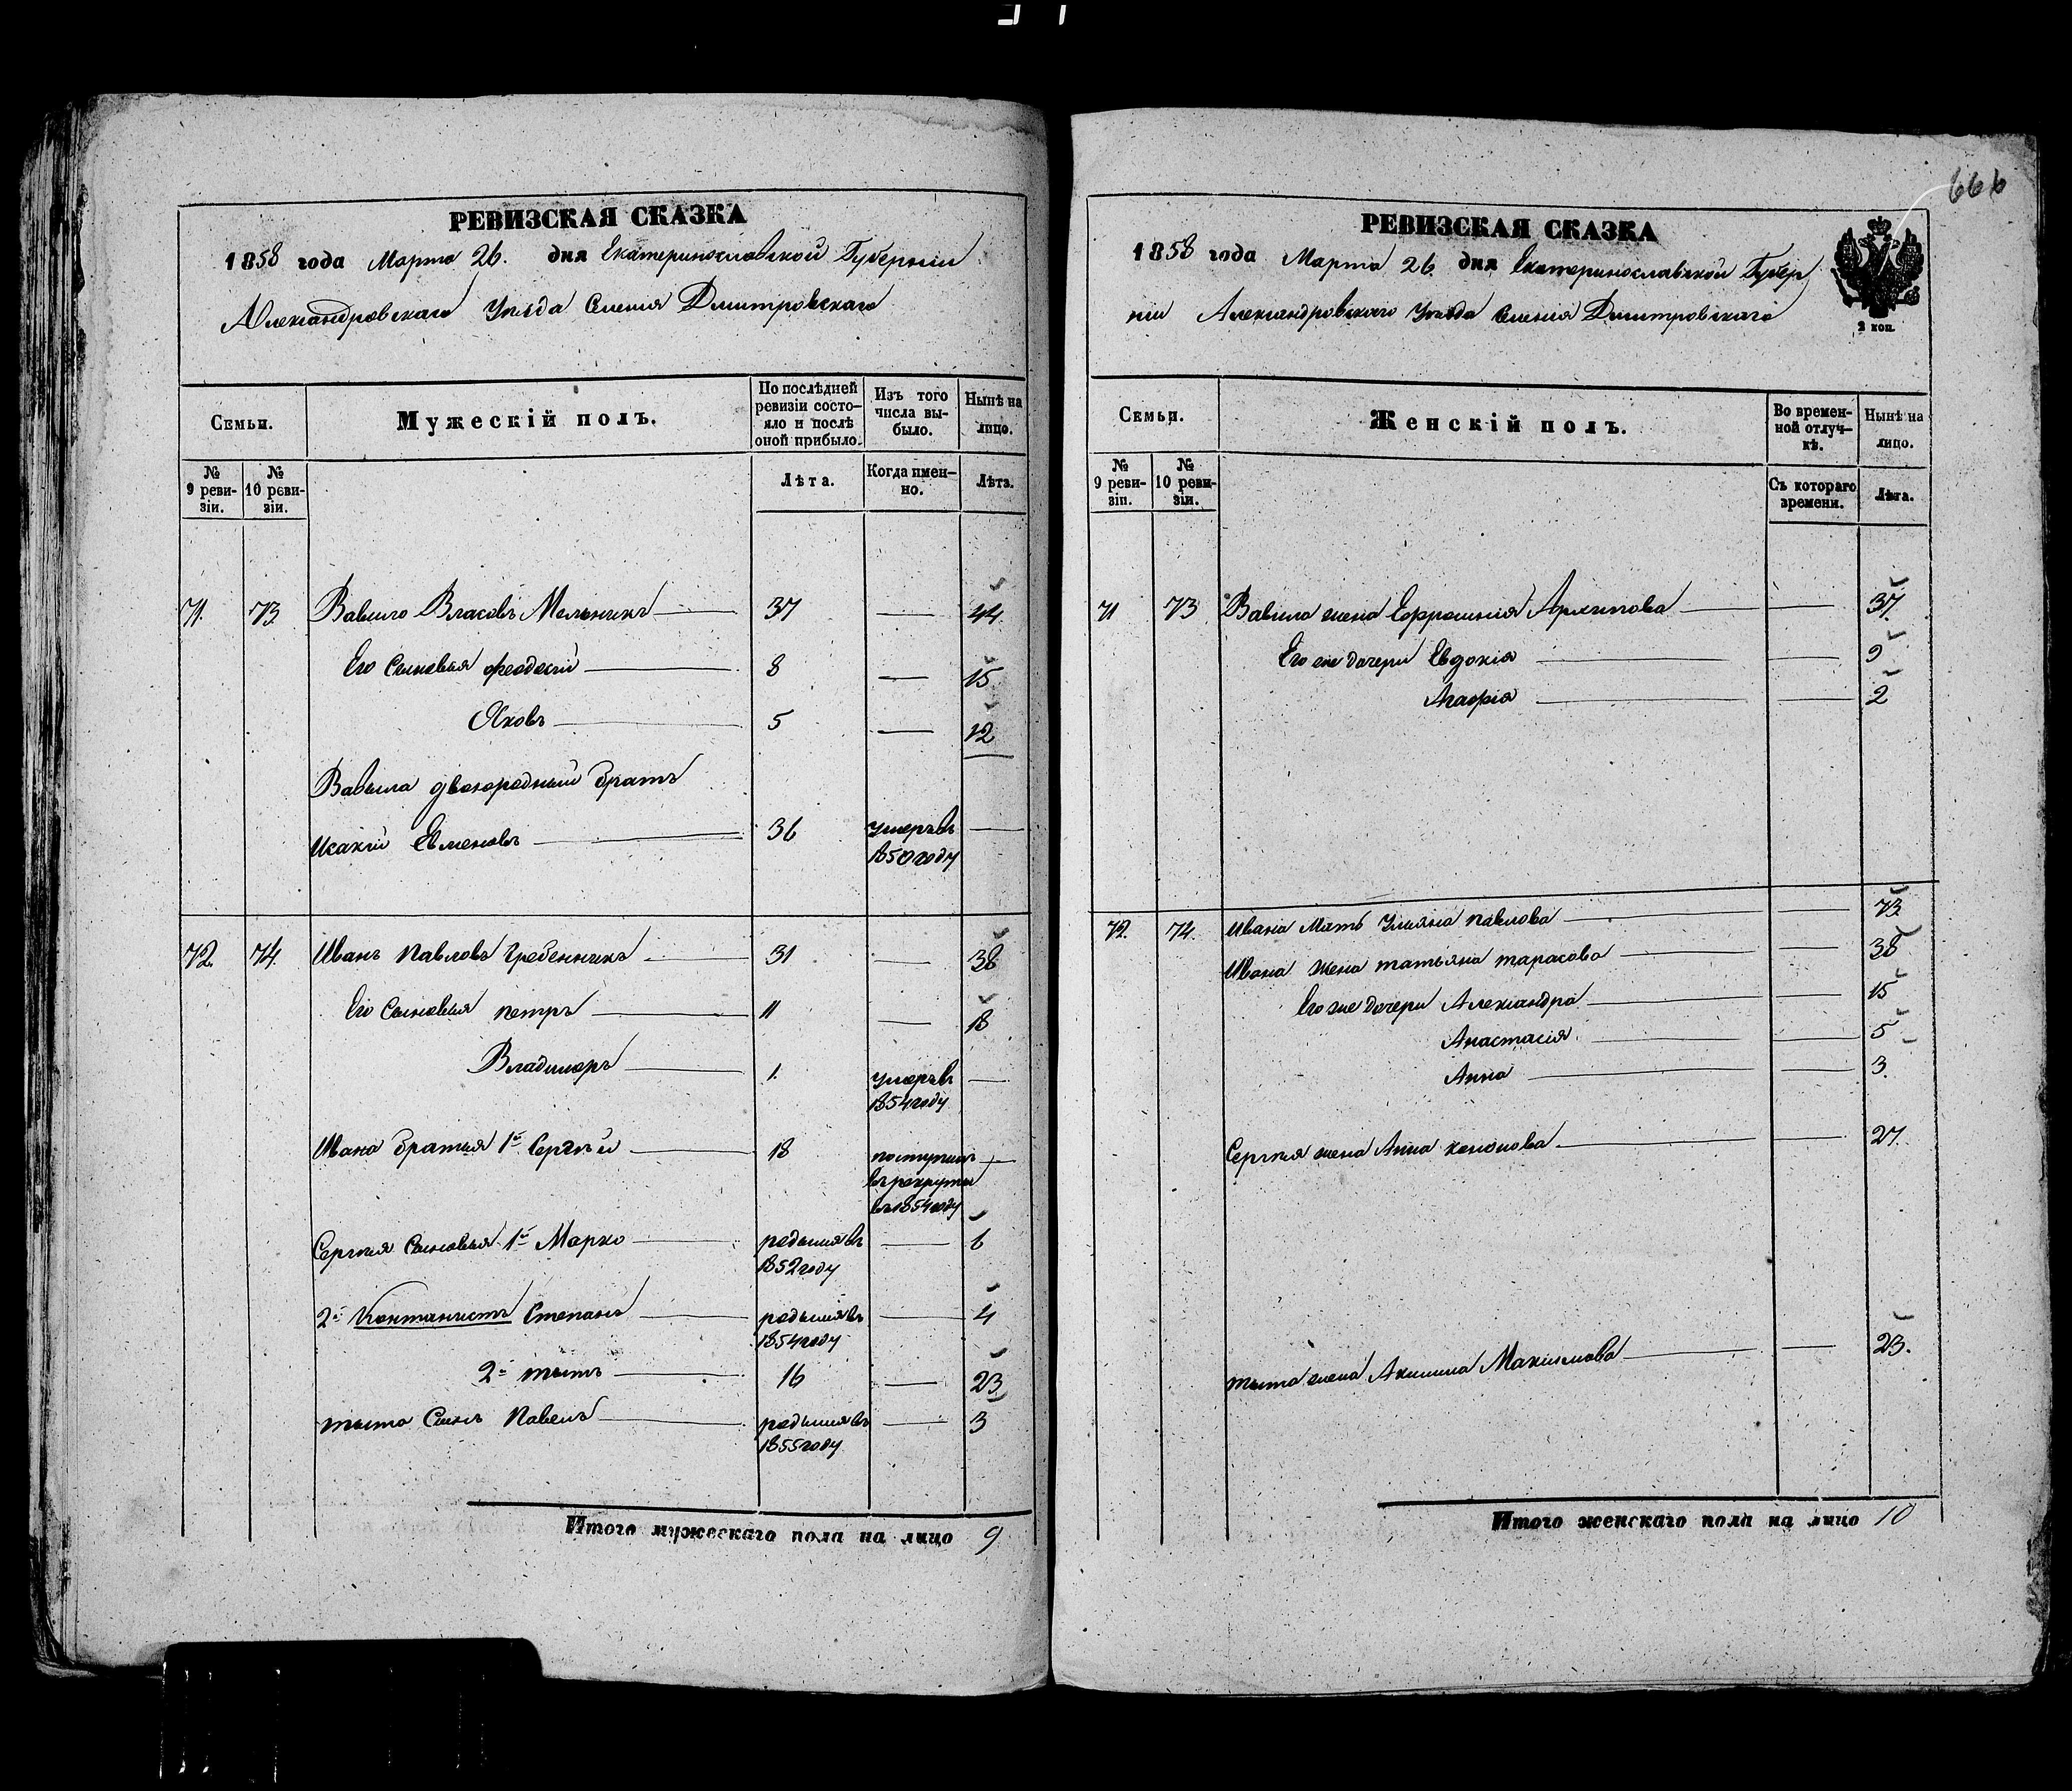 666
РЕВИЗСКАЯ СКАЗКА
1858 года Марта 26. дня Екатеринославской Губерніи
Александровскаго Уѣзда Селенія Дмитровскаго
Семьи.
Мужескій полъ.
По послѣдней ревизіи состо-
яло и послѣ
оной прибыло.
Изъ того
числа вы-
было.
Нынѣ на
лицо.
№
9 реви-
зіи.
№
10 реви-
зіи.
Лѣта.
Когда имен-
но.
Лѣта.
71. 73. Вавило Власовъ Мельникъ 37 — 44
Его Сыновья Феодосій 8 — 15
Яковъ 5 — 12
Вавила двоюродный братъ
Исакій Евменовъ 36 умеръ въ —
1850 году
72. 74. Иванъ Павловъ Гребенникъ 31 — 38
Его Сыновья Петръ 11 — 18
Владимеръ 1. умеръ въ —
1854 году
Ивана братья 1й Сергѣй 18 поступилъ —
въ рекруты
въ 1854 году
Сергѣя Сыновья 1й Марко родился въ — 6
1852 году
2й Контанистъ Степанъ родился въ — 4
1854 году
2й Тытъ 16 — 23
Тыта Сынъ Павелъ родился въ — 3
1855 году
Итого мужескаго пола на лицо 9
РЕВИЗСКАЯ СКАЗКА
1858 года Марта 26. дня Екатеринославской Губер
ніи Александровскаго Уѣзда Селенія Дмитровскаго
2 коп.
Семьи.
Женскій полъ.
Во времен-
ной отлуч-
кѣ.
Нынѣ на
лицо.
№
9 реви-
зіи.
№
10 реви-
зіи.
Съ котораго
времени.
Лѣта.
71 73 Вавила жена Ефросинія Архипова — 37.
Его же дочери Евдокія — 9
Агафія — 2
72. 74. Ивана Мать Ульяна Павлова — 73
Ивана жена Татьяна Тарасова — 38
Его же дочери Александра — 15
Анастасія — 5
Анна — 3.
Сергѣя жена Анна Кононова — 27.
Тыта жена Акилина Максимова — 23.
Итого женскаго пола на лицо 10